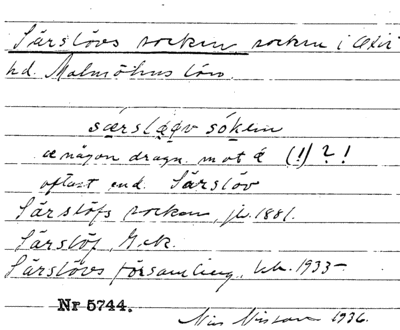 Särslövs socken socken i Oxie
hd. Malmöhus län.
særslǫǫv sóken
æ någon dragn. mot é (!) ? !
oftast end. Särslöv
Särslöfs socken, jb. 1881.
Särslöf, Gek.
Särslövs församling, kb. 1933-
Nr 5744.
Nils Nilsson 1936.